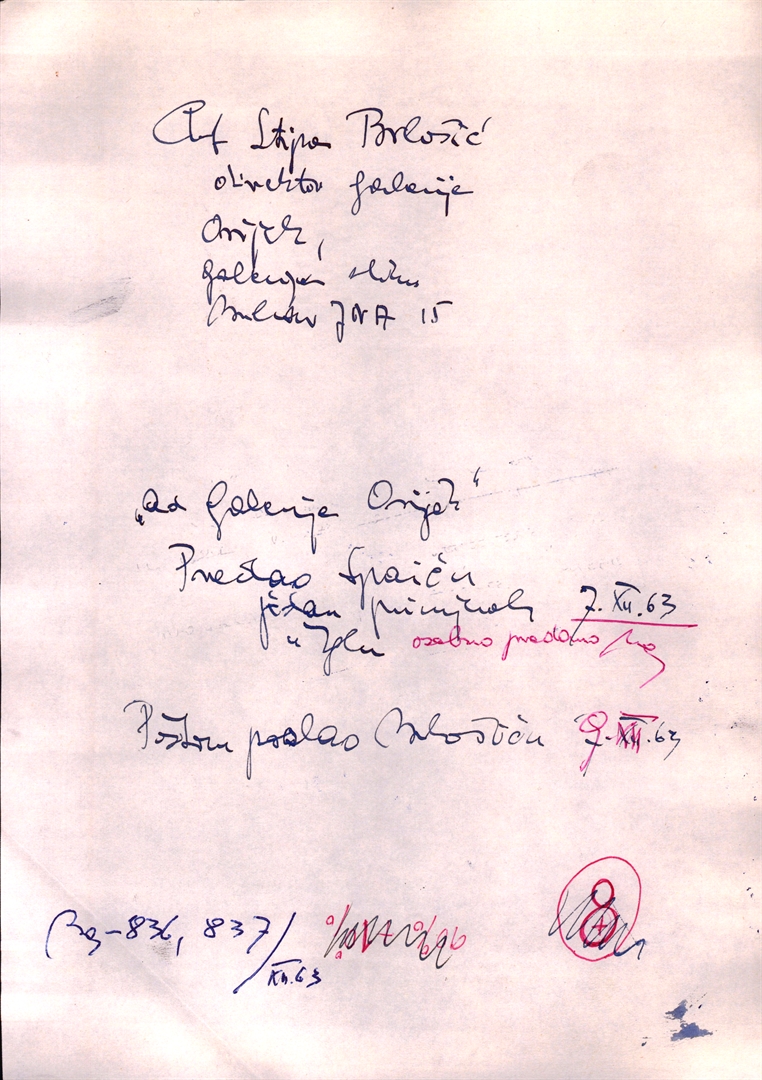 Prof Stipan Brlošić
direktor galerije
Osijek,
galerija slika
Bulevar JNA 15
„Ad Galerija Osijek“
Predao Spaiću
jedan primjerak 7. XII. 63
u Zgbu osobno predano
Poštom poslao Brlošiću 9. XII. 63
– 836, 837/
XII. 63
8